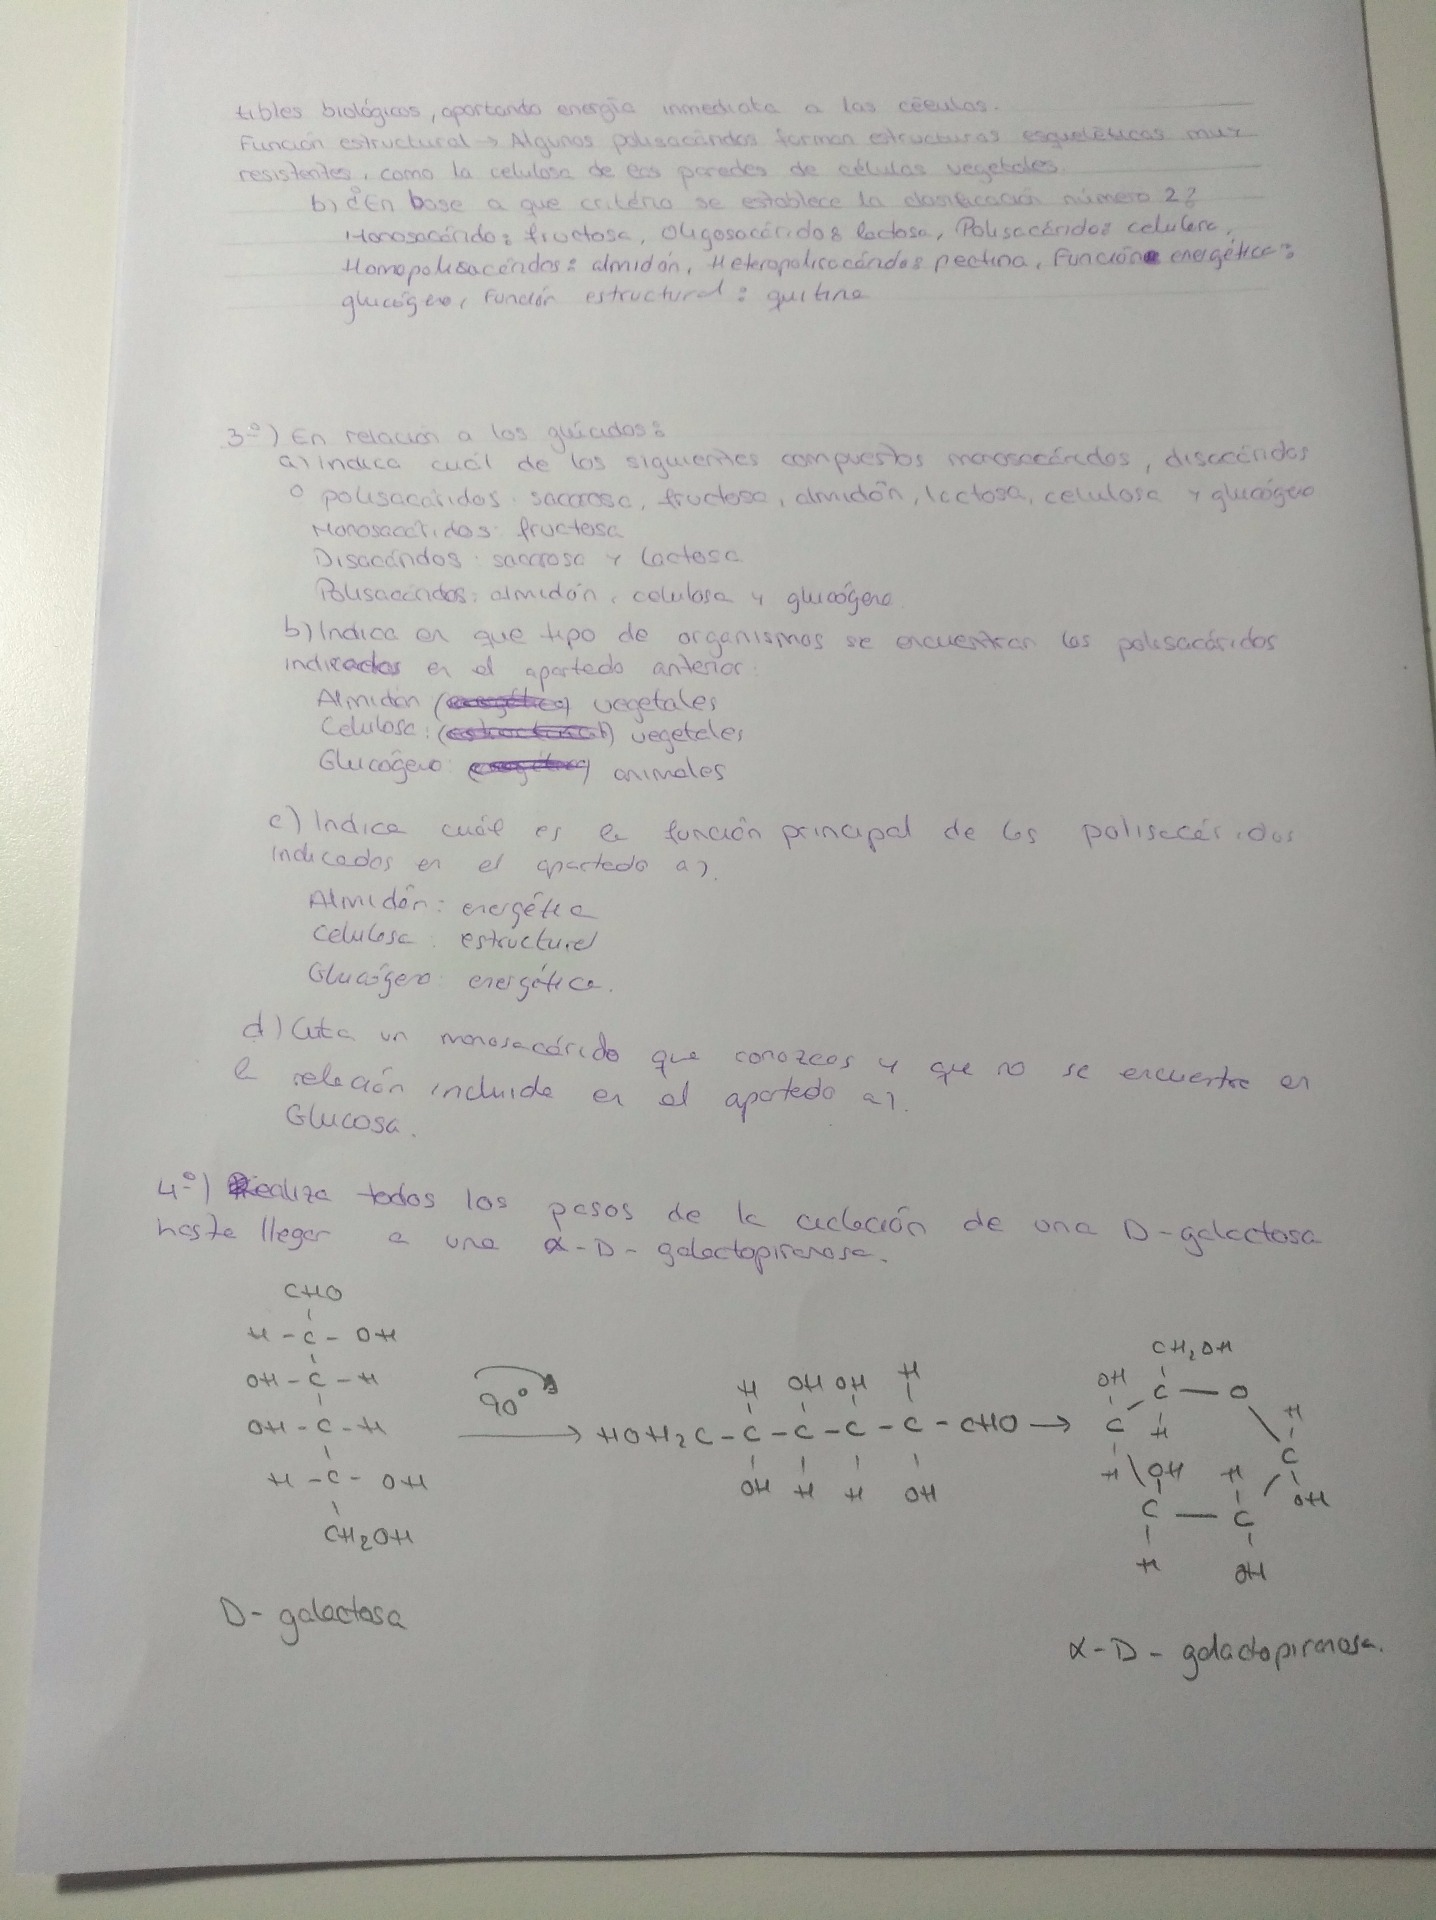 tibles biológicos, aportando energía inmediata a las células.
Función estructural → Algunos polisacáridos forman estructuras esqueléticas muy
resistentes, como la celulosa de las paredes de células vegetales.
b) ¿En base a que criterio se establece la clasificación número 2?
Monosacárido: fructosa, Oligosacáridos lactosa, Polisacáridos celulosa,
Homopolisacáridos: almidón, Heteropolisacáridos pectina, Función energética:
glucógeno, Función estructural: quitina
3º) En relación a los glúcidos:
a) indica cuál de los siguientes compuestos monosacáridos, disacáridos
o polisacáridos: sacarosa, fructosa, almidón, lactosa, celulosa y glucógeno
Monosacáridos: fructosa
Disacáridos: sacarosa y lactosa
Polisacáridos: almidón, celulosa y glucógeno
b) Indica en que tipo de organismos se encuentran los polisacáridos
indicados en el apartado anterior:
Almidón vegetales
Celulosa: vegetales
Glucógeno: animales
c) Indica cuál es la función principal de los polisacáridos
indicados en el apartado a).
Almidón: energética
Celulosa: estructural
Glucógeno: energética.
d) Cita un monosacárido que conozcas y que no se encuentre en
la relación incluida en el apartado a).
Glucosa.
4º) Realiza todos los pasos de la ciclación de una D-galactosa
hasta llegar a una α-D-galactopiranosa.
CHO
H - C - OH
OH - C - H
OH - C - H
H - C - OH
CH2OH
90°
H OH OH H
HOH2C - C - C - C - C - CHO →
OH H H OH
CH2OH
OH C — O
C H H
H OH H C
C — C OH
H OH
D-galactosa
α-D-galactopiranosa.